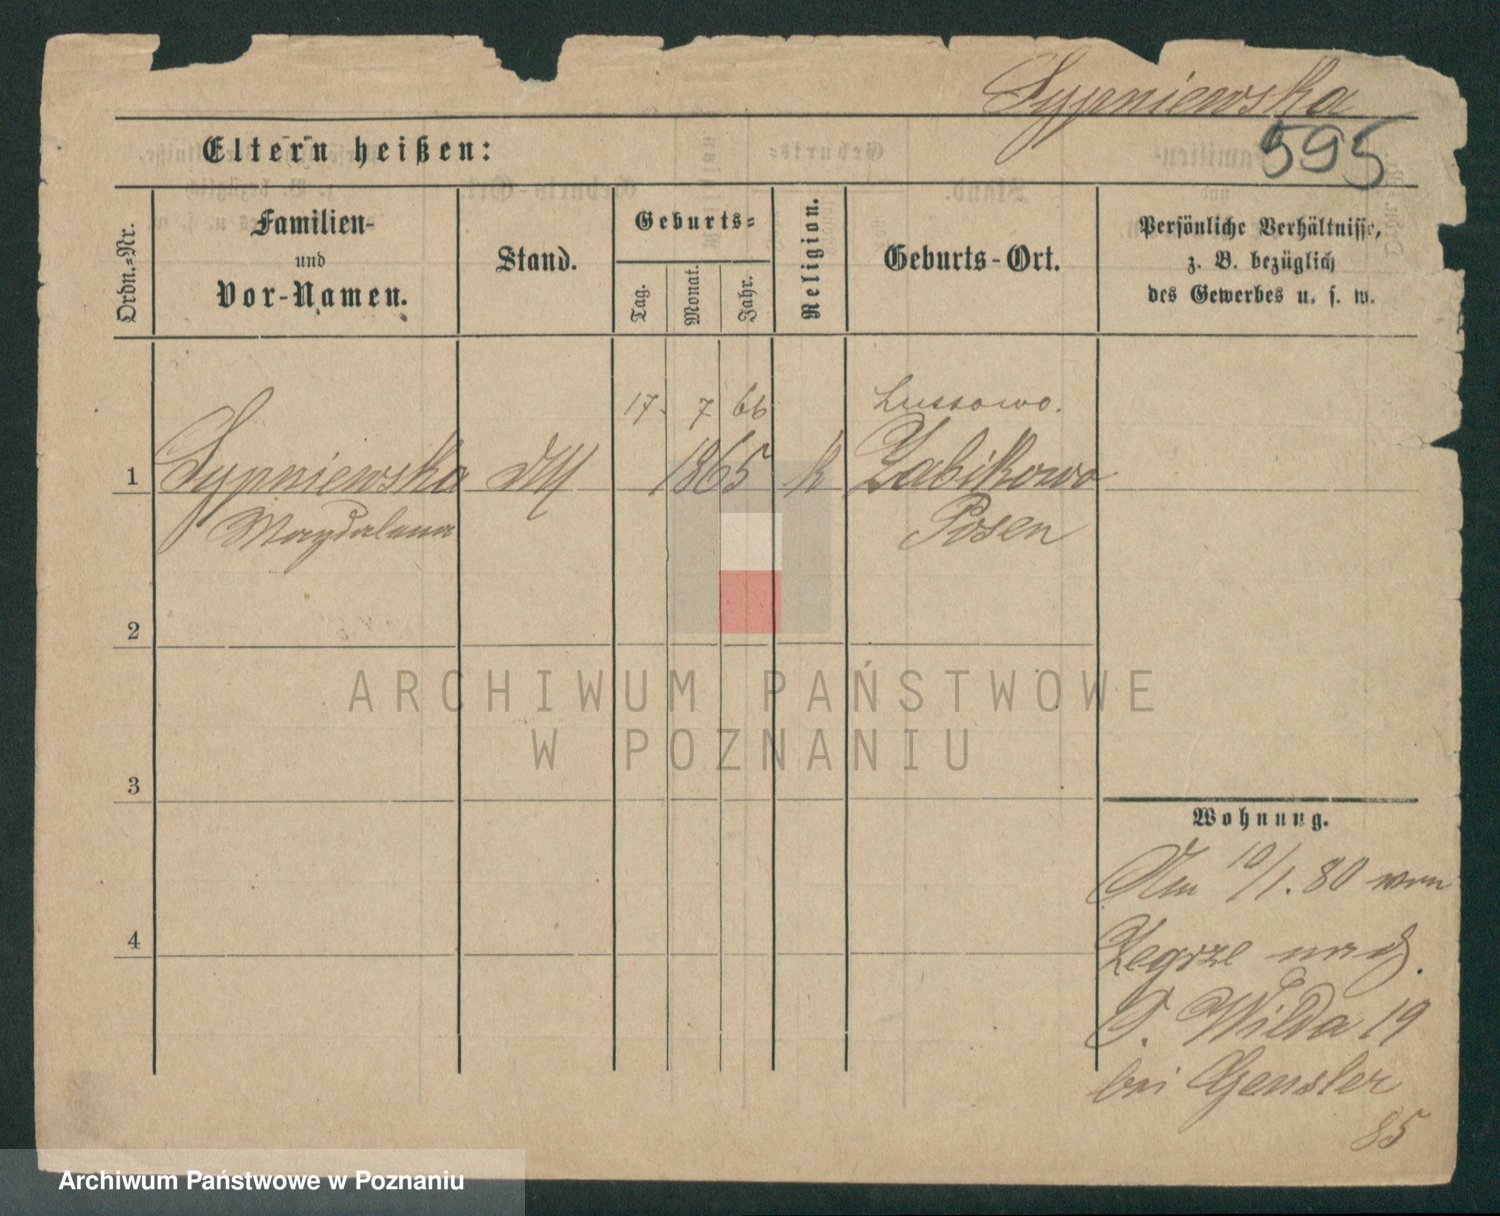 Sypniewska
595
Eltern heißen:
Ordn.=Nr.
Familien-
und
Vor-Namen.
Stand.
Geburts=
Tag.
Monat.
Jahr.
Religion.
Geburts-Ort.
Persönliche Verhältnisse,
z. B. bezüglich
des Gewerbes u. s. w.
17. 7 66 Lussowo.
1 Sypniewska 1865 k Zabikowo
Magdalena Posen
2
3
4
ARCHIWUM PAŃSTWOWE
W POZNANIU
Wohnung.
10/1. 80 von
Zegrze nach
O. Wilda 19
bei Gensler
85
Archiwum Państwowe w Poznaniu